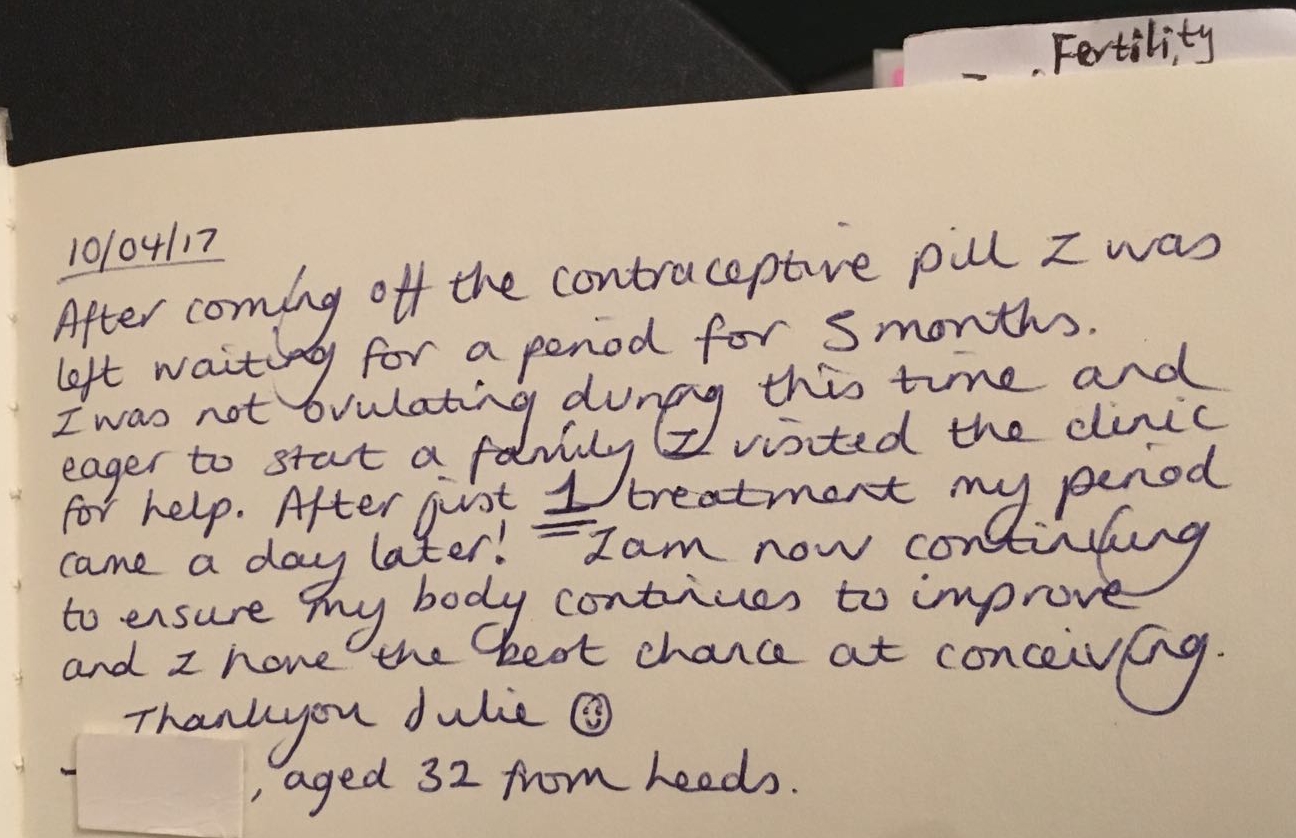 Fertility
10/04/17
After coming off the contraceptive pill I was
left waiting for a period for 5 months.
I was not ovulating during this time and
eager to start a family I visited the clinic
for help. After just 1 treatment my period
came a day later! I am now continuing
to ensure my body continues to improve
and I have the best chance at conceiving.
Thankyou Julie ☺
- , aged 32 from Leeds.